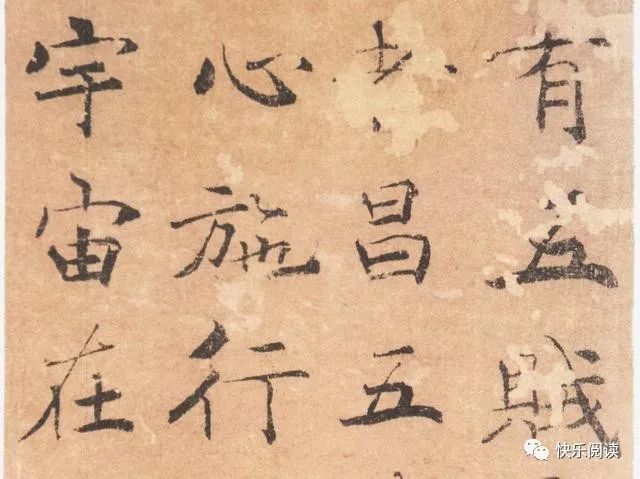 有五賊
昌五
心施行
宇宙在
快乐阅读